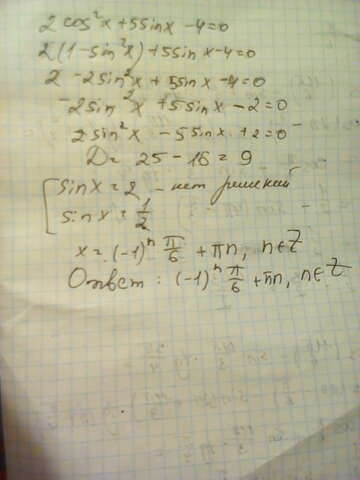 2 cos²x + 5 sin x - 4 = 0
2(1 - sin²x) + 5 sin x - 4 = 0
2 - 2 sin²x + 5 sin x - 4 = 0
-2 sin²x + 5 sin x - 2 = 0
2 sin²x - 5 sin x + 2 = 0
D = 25 - 16 = 9
[ sin x = 2 - нет решений
sin x = 1/2
x = (-1)ⁿ π/6 + πn, n ∈ Z
Ответ: (-1)ⁿ π/6 + πn, n ∈ Z